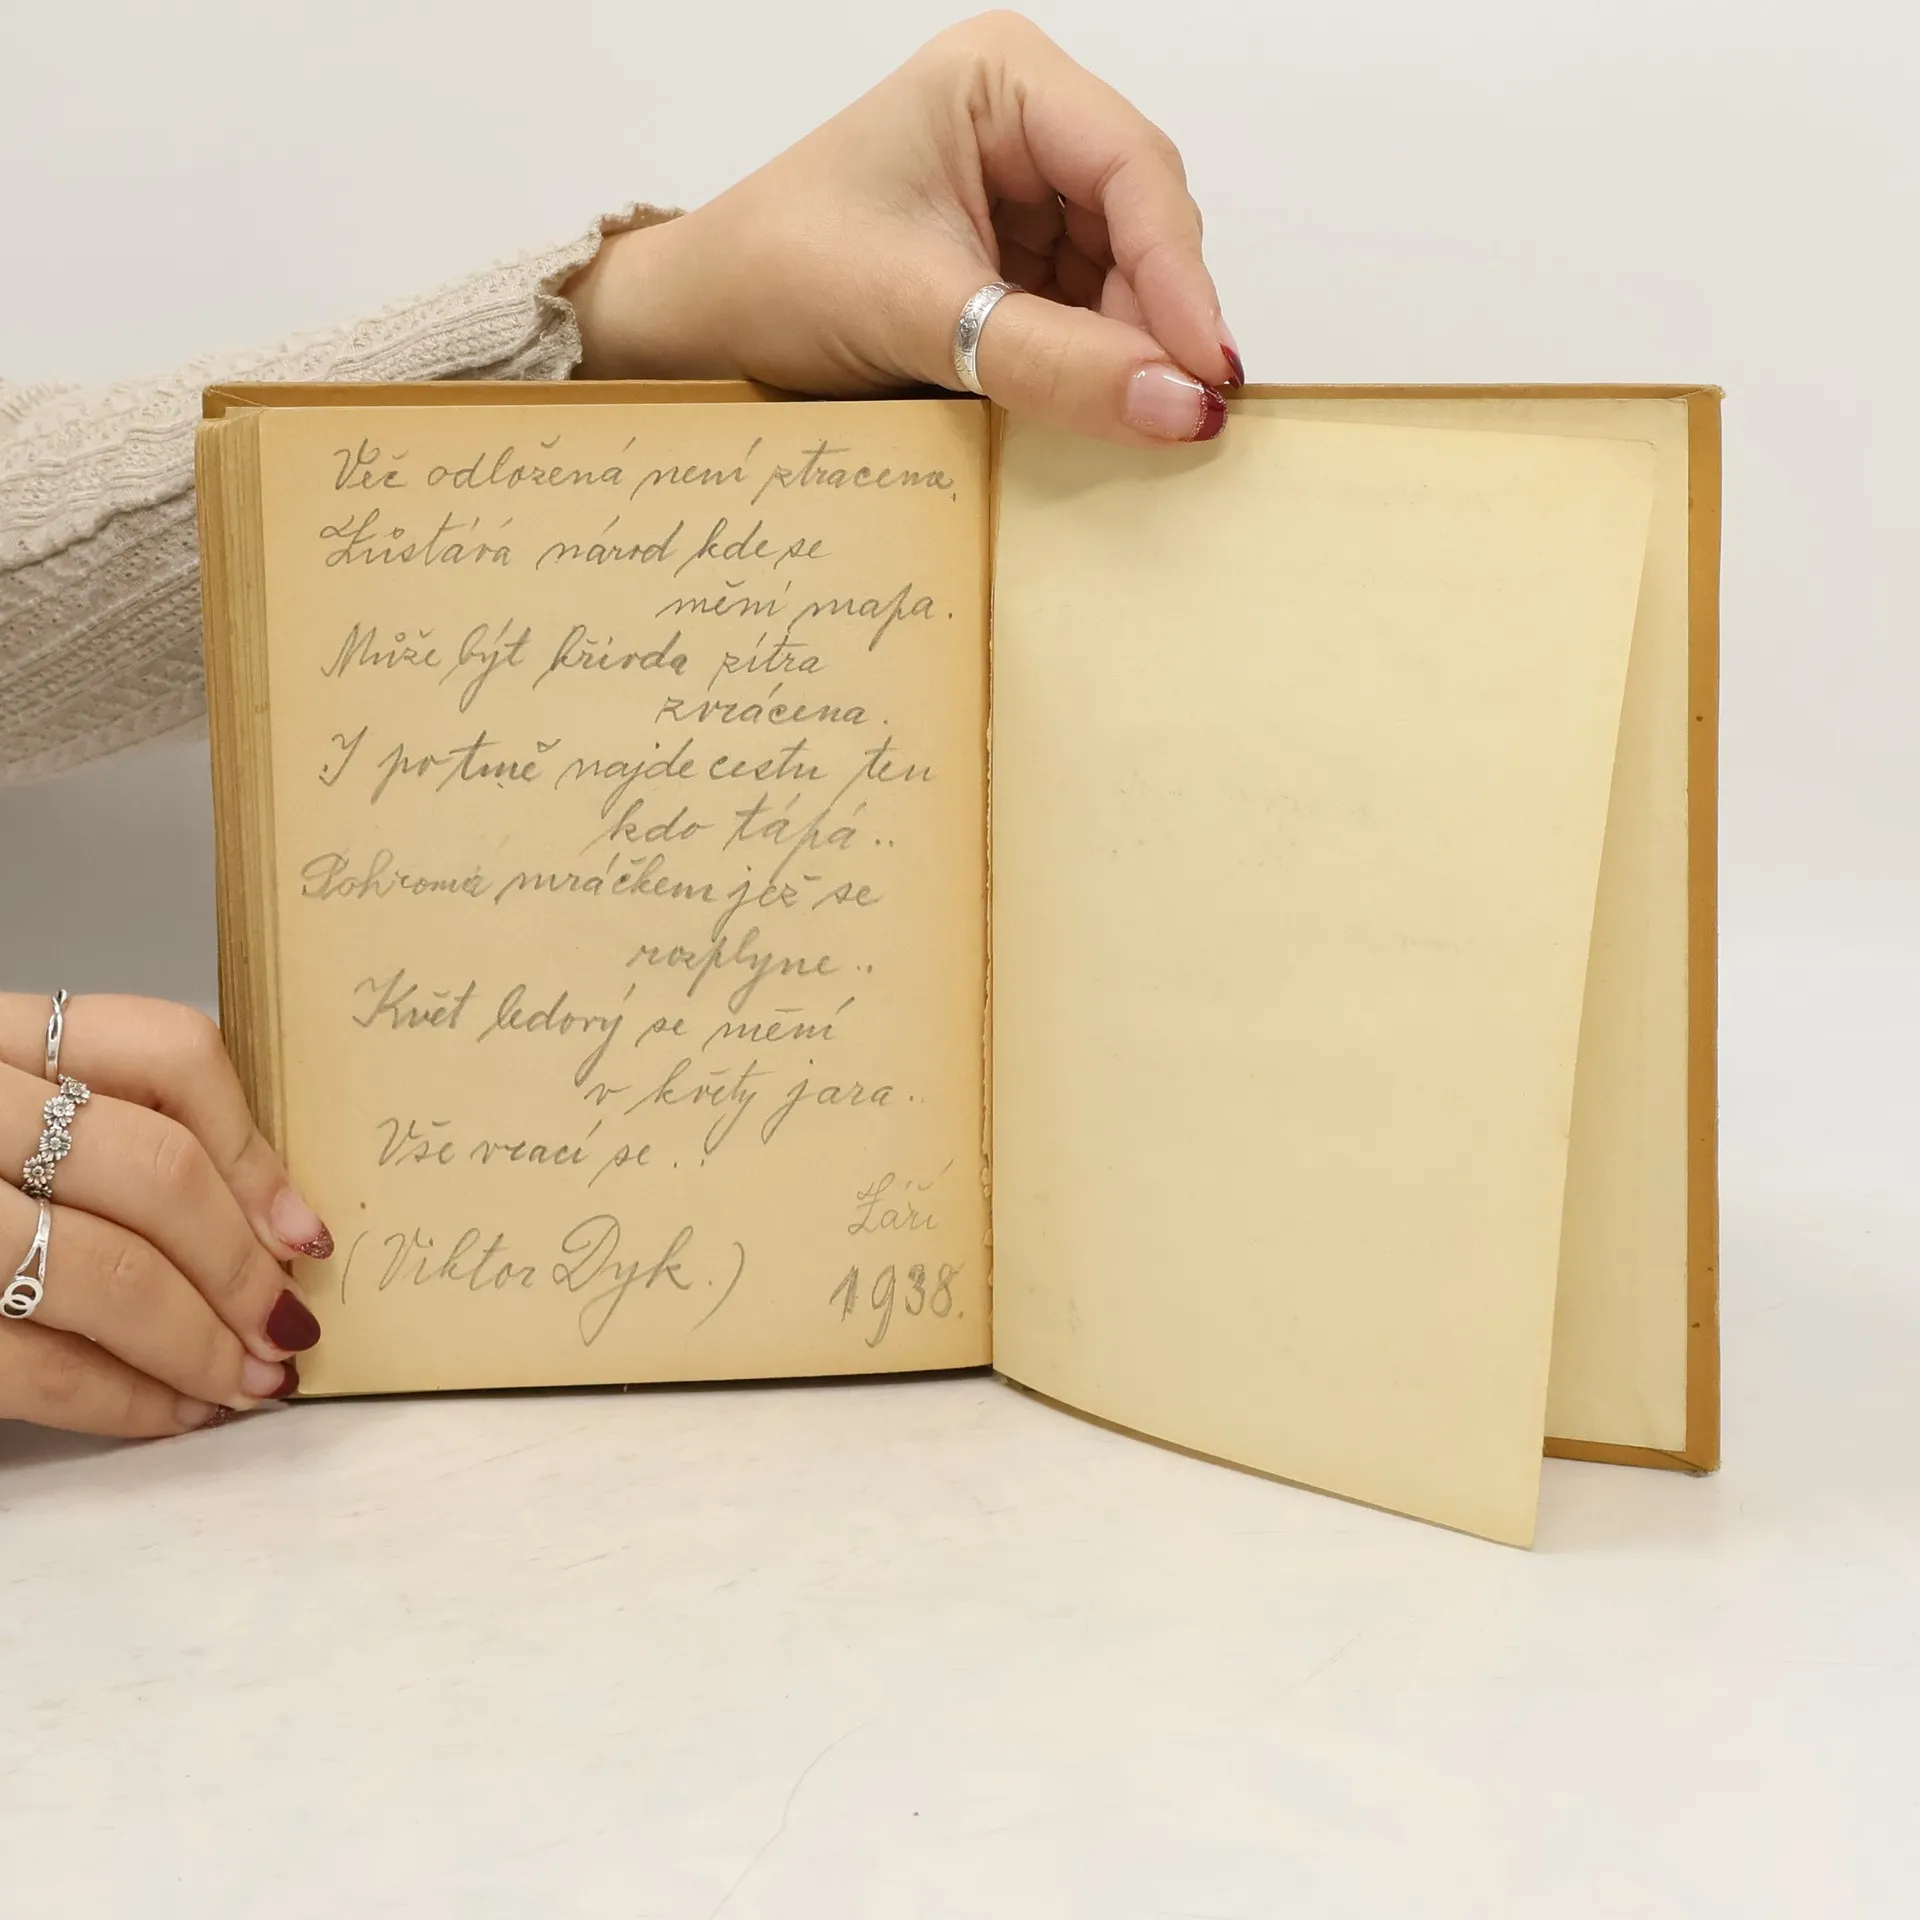 Věc odložená není ztracena.
Zůstává národ kde se
mění mapa.
Může být křivda zítra
zvrácena.
I po tmě najde cestu ten
kdo tápá..
Pohroma mráčkem jež se
rozplyne..
Květ ledový se mění
v květy jara..
Vše vrací se...
Září
(Viktor Dyk.) 1938.